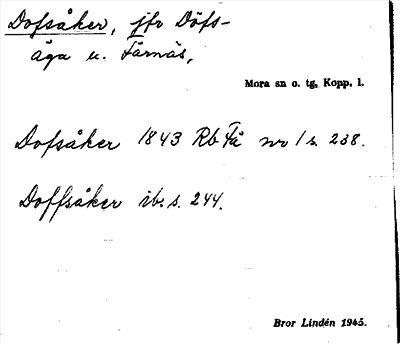 Dofsåker, jfr Döfs-
äga u. Färnäs,
Mora sn o. tg, Kopp. l.
Dofsåker 1843 Rb Få nr 1 s. 238.
Doffsåker ib. s. 244.
Bror Lindén 1945.